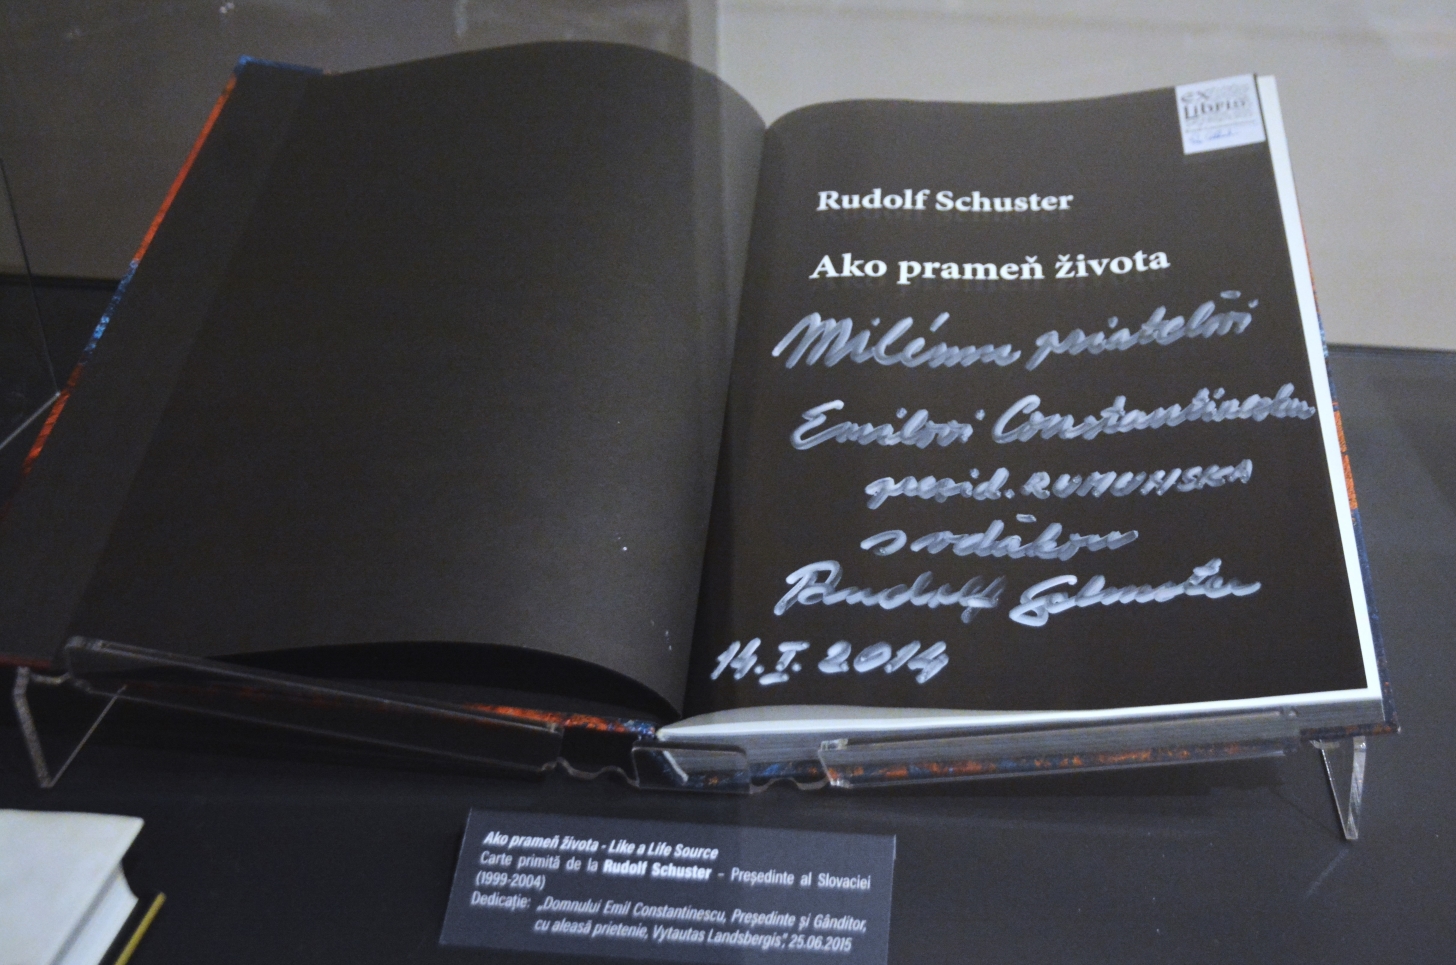 ex
Libris
Rudolf Schuster
Ako prameň života
Milému priateľovi
Emilovi Constantinescu
prezid. RUMUNSKA
s vďakou
Rudolf Schuster
14.I.2014
Ako prameň života - Like a Life Source
Carte primită de la Rudolf Schuster – Președinte al Slovaciei
(1999-2004)
Dedicație: „Domnului Emil Constantinescu, Președinte și Gânditor,
cu aleasă prietenie, Vytautas Landsbergis”, 25.06.2015